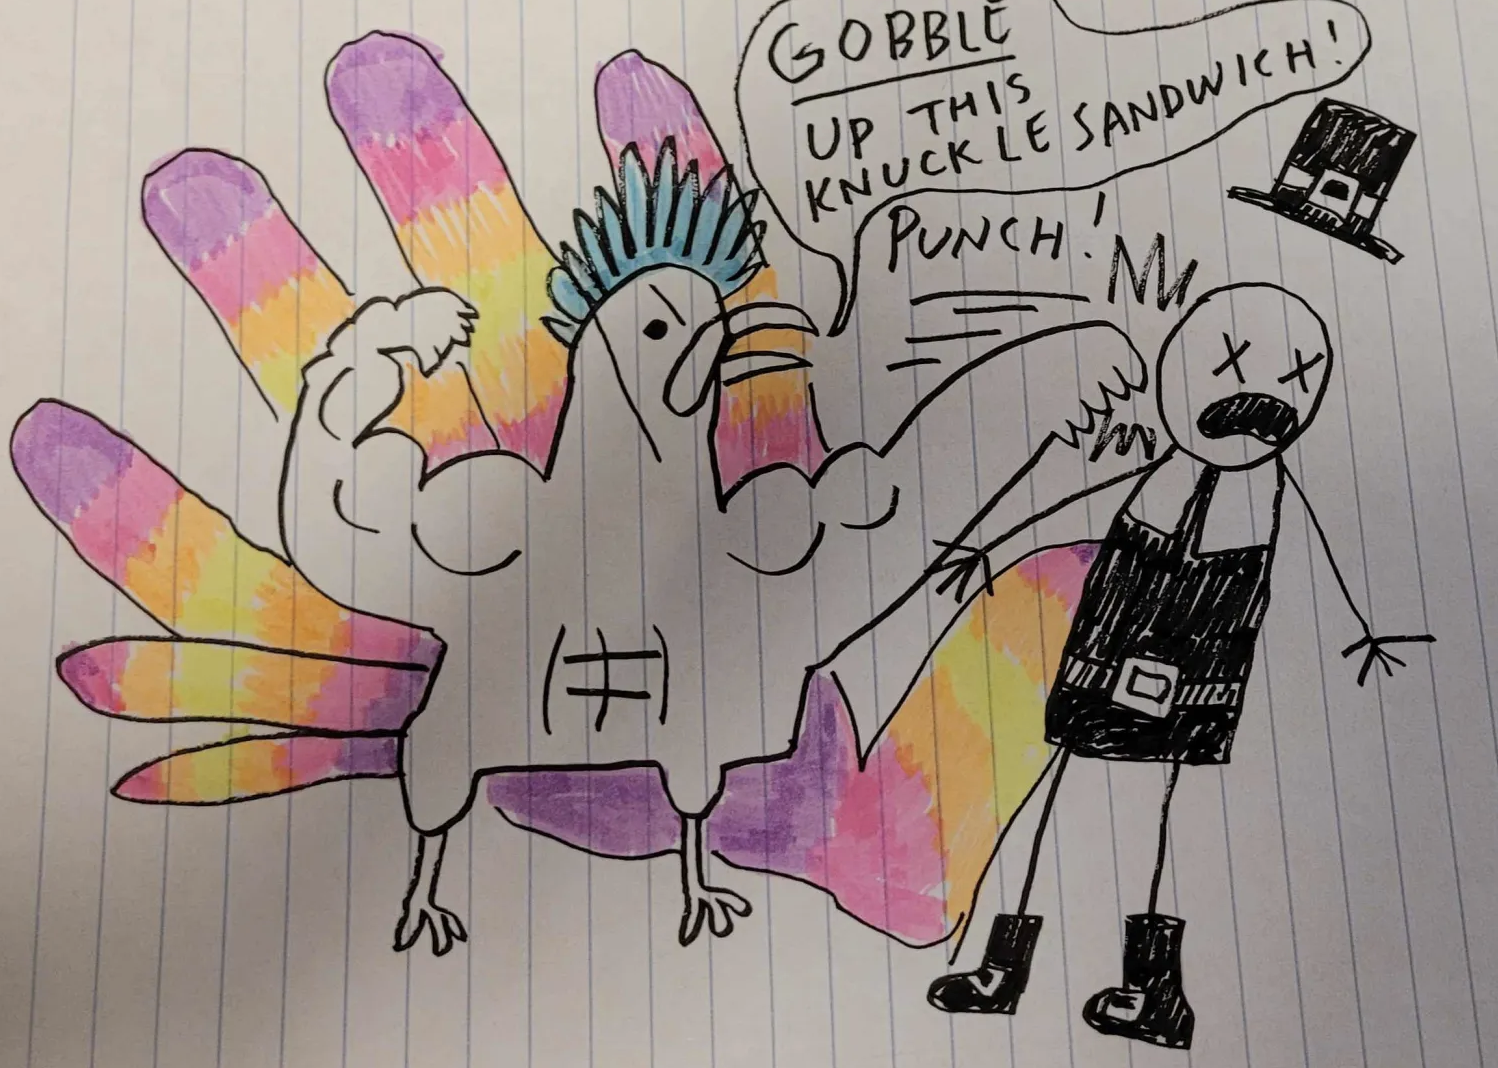 GOBBLE
UP THIS
KNUCKLE SANDWICH!
PUNCH!